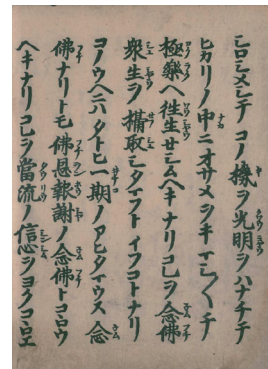 シロシメシテコノ機ヲ光明ヲハナチテ
ヒカリノ中ニオサメヲキマシ〱テ
極樂ヘ往生セシムヘキナリコレヲ念佛
衆生ヲ攝取シタマフトイフコトナリ
コノウヘニハタトヒ一期ノアヒタマウス念
佛ナリトモ佛恩報謝ノ念佛トコロウ
ヘキナリコレヲ當流ノ信心ヲヨクココロエ